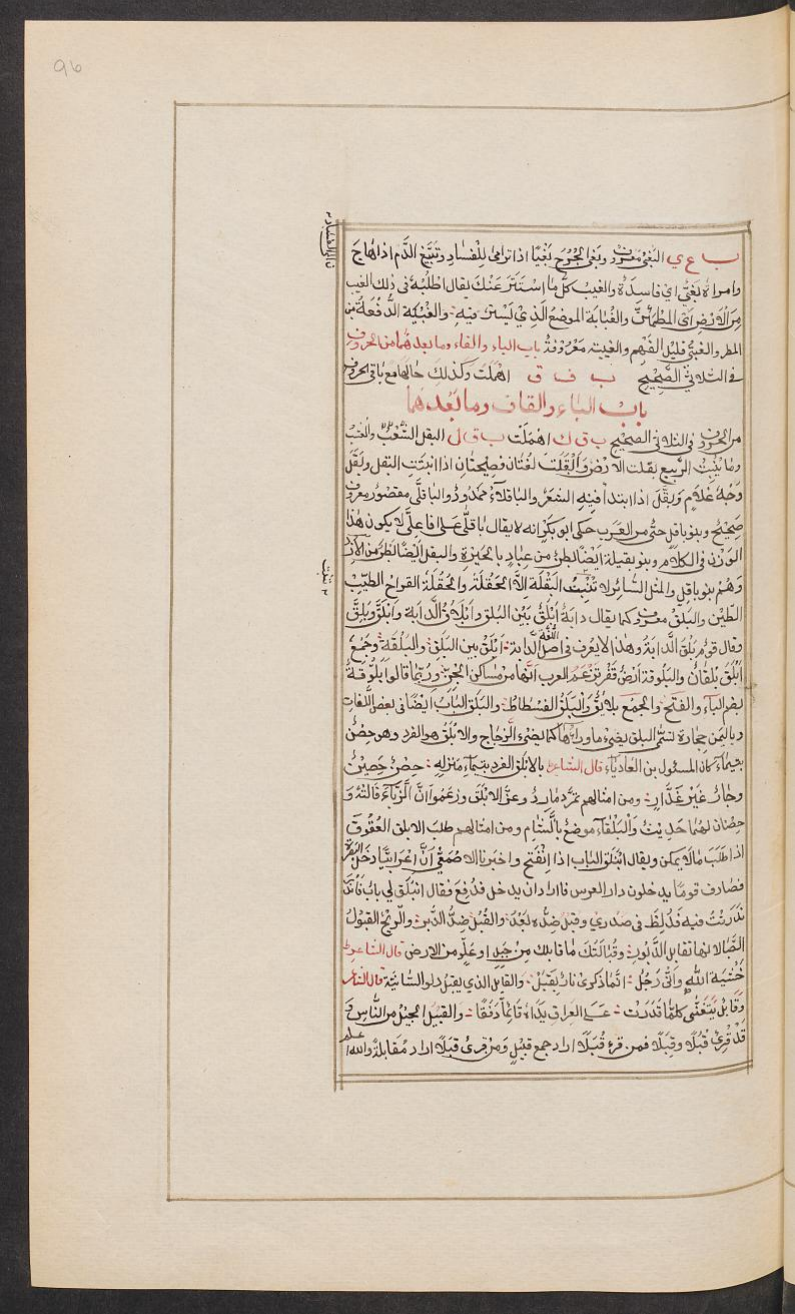 96
ب غ ي البَغْيُ معروف وبَغَى الجُرْحُ بَغْيًا اذا ترامى للفساد وتَبَيَّغَ الدَّم اذا هاج
وامراة بَغِيٌّ اي فاسِدَة والغيب كلّ ما اسْتَتَرَ عَنْكَ يقال اطلُبْهُ في ذلك الغيب
مِنَ الارْضِ اي المطْمَئِنّ والغَيَابَة الموضعُ الَّذي يُسْتَر فيهِ والغَبْيَة الدَّفعَة من
المطر والغبيّ قليل الفَهْم والغيبة مَعْرُوفةٌ باب الباء والفاء وما بعدهما من الحروف
في الثلاثي الصَّحِيح ب ف ق اهْمِلَت وكذلك حالها مع باقي الحروف
بابُ الباء والقاف وما بَعْدهُما
من الحروف في الثلاثي الصحيح ب ق ك اهْمَلَت ب ق ل البقل العُشب
وما يُنْبِت الربيع بقلت الارْضُ وأَبْقَلَت لغتان فصيحتان اذا انبتت البقل وبَقَلَ
وَجْهُ غلام وبَقَّلَ اذا ابتدأ فيه الشعَرُ والباقلاءُ ممدودٌ والباقلَّى مقصُور معروف
صَحِيحٌ وبنو باقل حيّ من العَرَب حكى ابو بكر انه لا يقال باقلَّى على فاعلَّى لا يكون هذا
الوَزن في الكلام وبنو بقيلة ايضا بطن من عِبادٍ بالحيرة والبقل ايضًا بَطن من الأزد
وَهُم بنو باقل والمثل السَّائر لا تُنْبِتُ البَقْلَةَ إلّا الحَقْلَةُ والحَقْلَة القراح الطيّبُ
الطين والبَلَق معروف كما يقال دابة أبْلَقُ بَيّن البُلَق وابْلَقَّ الدَّابة وابْلَقَّ وبلِقَ
وقال قوم بَلَقَ الدَّابةُ وهذا لا يُعرف في اصل اللغة الدابة أبْلَقُ بين البَلَق والبُلقَة وجمْعُ
أبْلَقَ بُلقانٌ والبَلُوقة أرْضُ قَفْرٌ تزعم العرب انَّها من مساكن الجنّ ورُبَّما قالوا بَلُّوقَةٌ
بضم الباء والفتح والجمْع بلاليق والبَلَقُ الفسْطاط والبَلَق البَابُ ايضًا في بعض اللُّغات
وباليَمن حِجارة تسمَّى البلق يضيء ما وراءَها كما يضيء الزجاج والابْلَقُ هو الفرد وهو حصْنٌ
بتيماءَ كان المسمَوئل بن العاديَآءِ قال الشاعر بالابْلَقِ الفَرد بتيمآءَ مَنزِلهِ حِصْنٌ حَصِينٌ
وجارٌ غَيْر غَدّارِ ومن امثالهم تمرَّد مَارِدٌ وعزَّ الابْلَق وزعموا انَّ الزَّبآءَ قالتْهُ و
حِصْنان لهُما حَديثٌ والبَلْقَاء موضعٌ بالشام ومن امثالهم طلبَ الابلق العُقُوقَ
اذا طَلَبَ مَا لا يمكن ويقال انْبلَق الباب اذا انْفَتَح واخبرنا الاصْمَعِيّ أنّ اعْرابيًّا دخلَ البَصْرَةَ
فصَادف قومًا يدخلون دار العرس فاراد ان يدخل فدُفِع فقال انبَلَق لي باب فانْد
نَدَرَتْ فيه فَدُلِظَ في صَدري وقبلُ ضدّه بَعْدُ والقُبُل ضِدُّ الدُّبر والرّيح القبولُ
الصَّبا لانها تقابل الدَّبُورَ وقُبَالَتُك ما قابلك مِنْ جَبل او عُلُوٍ من الارض قال الشاعر
خَشْيةَ اللهِ وأنّي رَجُلٌ انَّما ذكري نارٌ بقَبَلْ والقابِل الذي يقبل دلو السَّانيَة قال الشاعر
وقابلٌ يَتَغَنّى كلمّا قَدَرَتْ على العِراقي يَداهُ قائماً دَفَقَا والقبيل الجيلُ من النَّاس وَ
قَدْ قُرِئَ قُبُلًا وقِبَلًا فمن قرأ قُبُلًا اراد جمع قبيل ومن قرئ قِبَلًا اراد مُقَابلةً والله اعلم